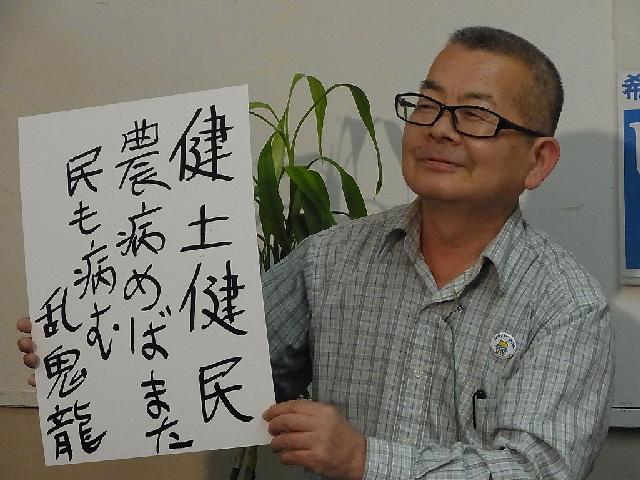 健土健民
農病めばまた
民も病む
乱鬼龍
希